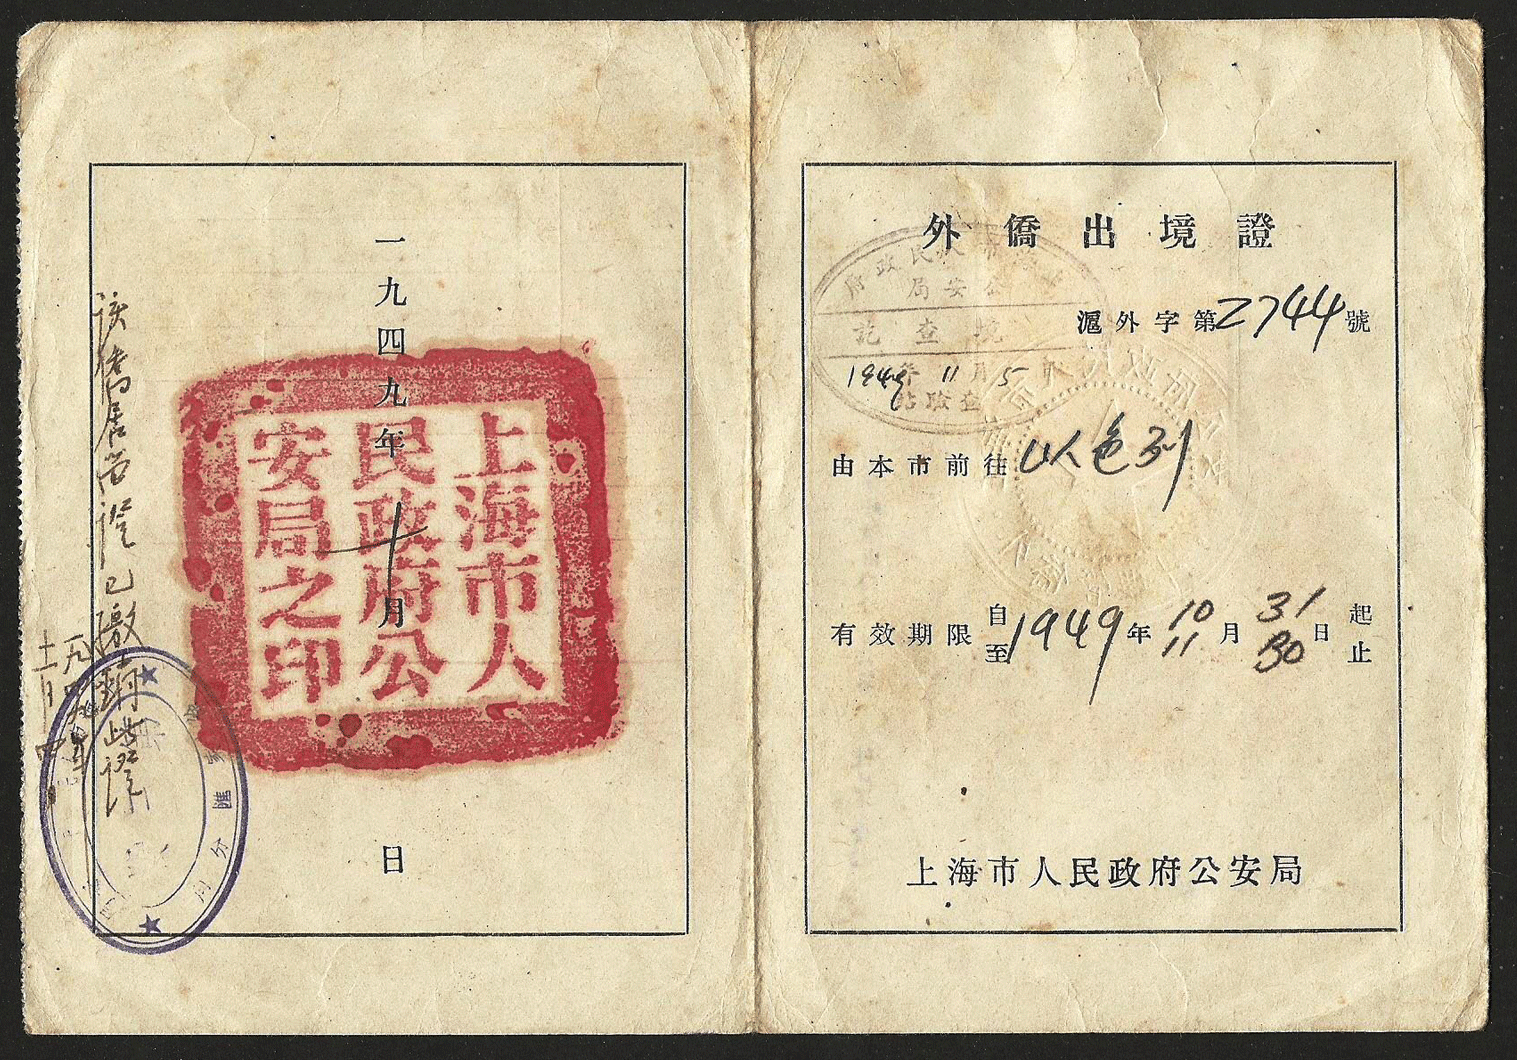 外僑出境證
滬外字第2744號
由本市前往以色列
有效期限自1949年10月31日起
至11 30止
上海市人民政府公安局
民政府
公安局
境查訖
1949年11月5日
一九四九年十月 日
上海市人
民政府公
安局之印
該僑居留證已繳銷此證
分局